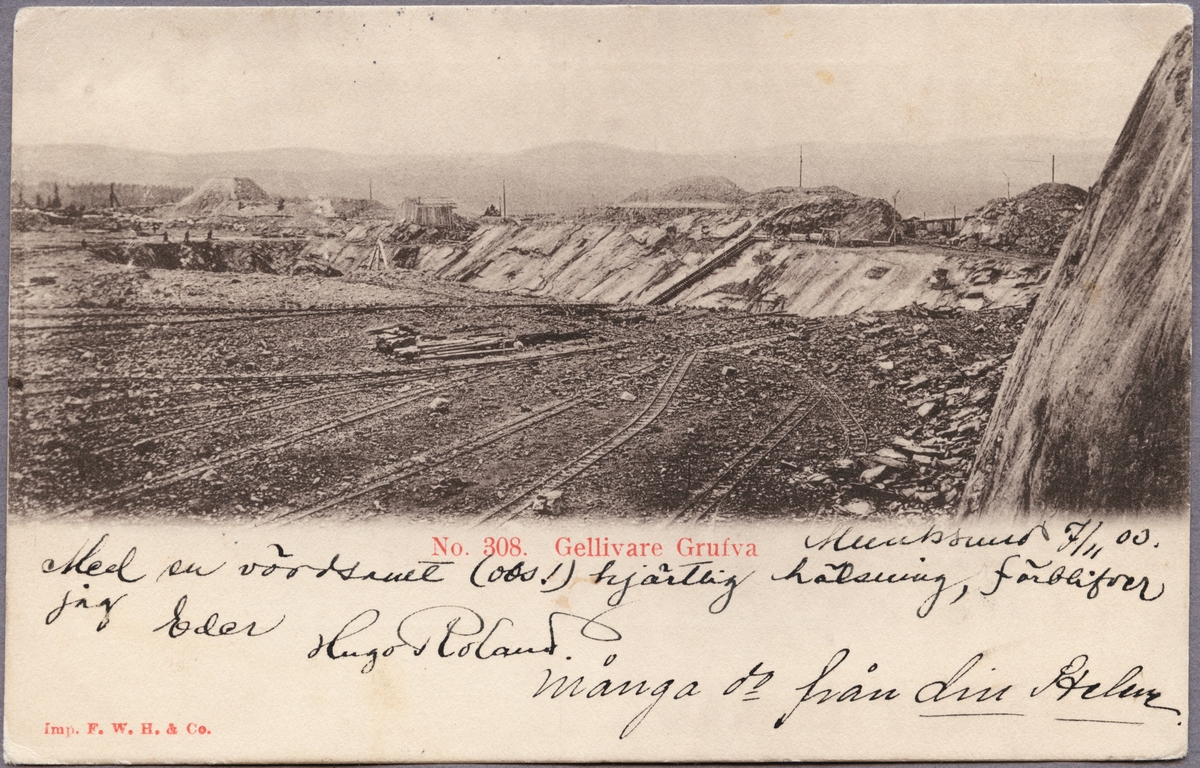 No. 308. Gellivare Grufva
Munksund 7/11 00.
Med en vördsamt (obs!) hjärtlig hälsning, förblifver
jag Eder
Hugo Roland.
många do från din
Imp. F. W. H. & Co.